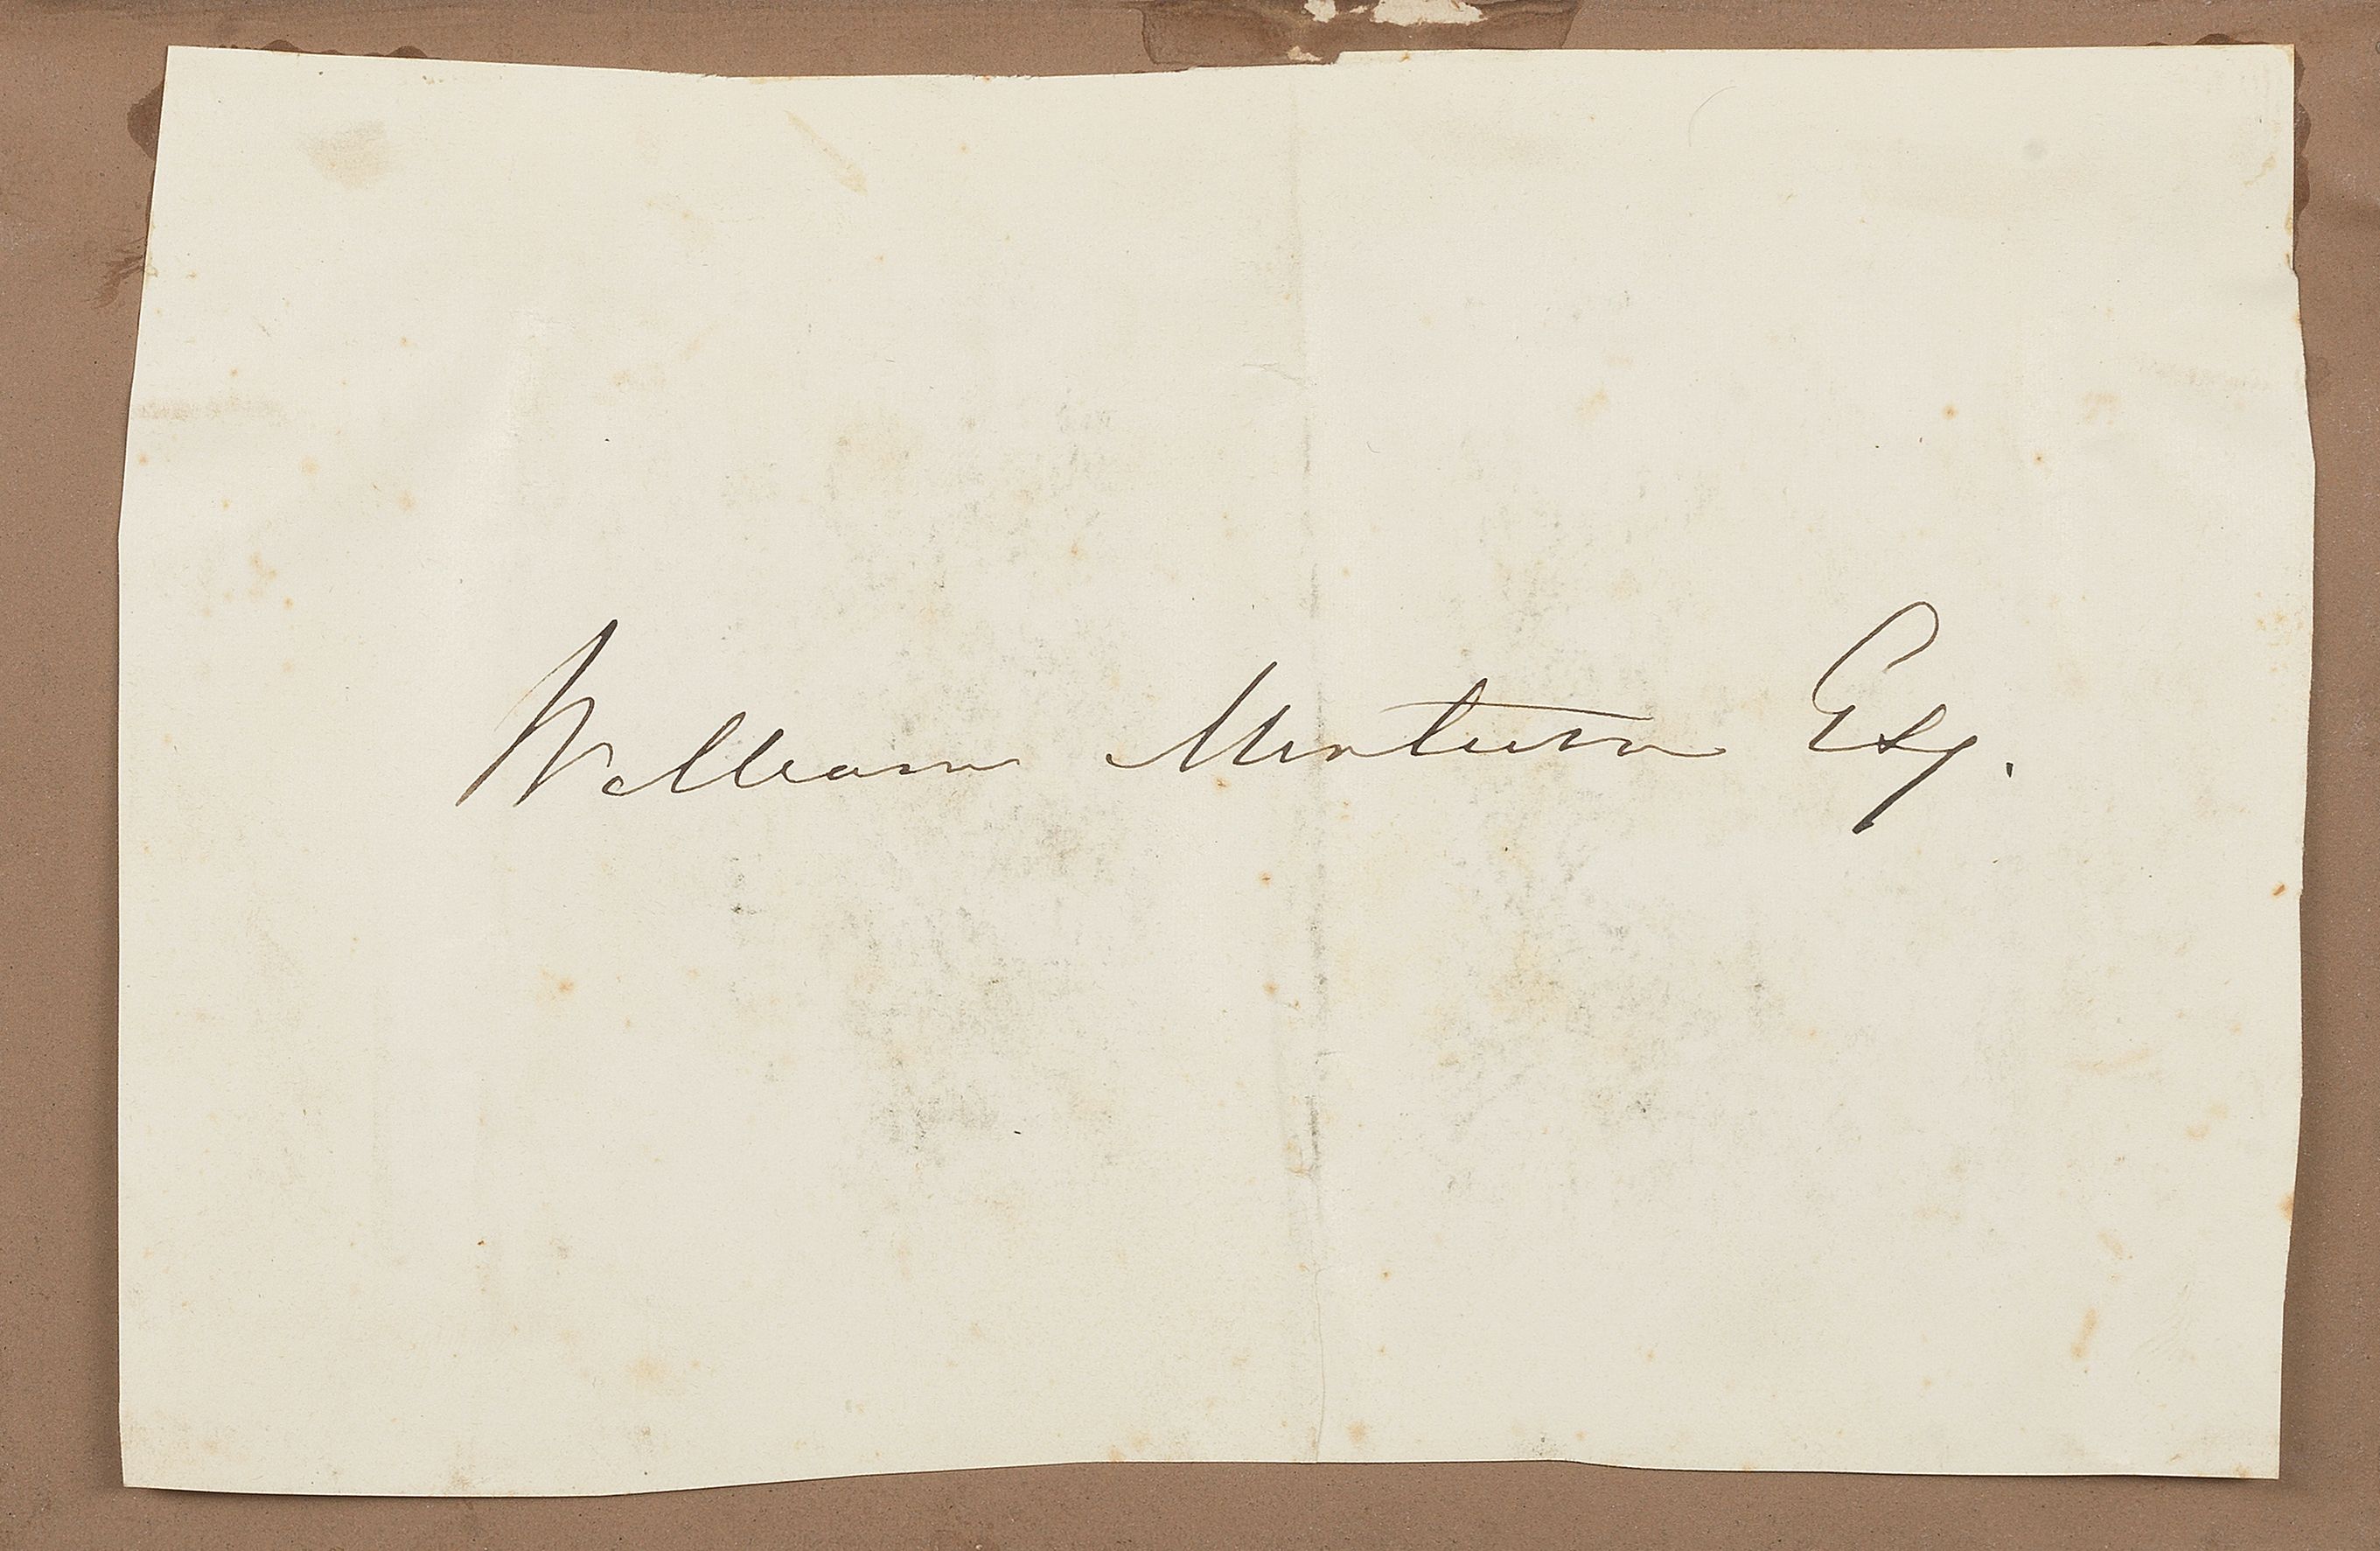 William Minturn Esq.